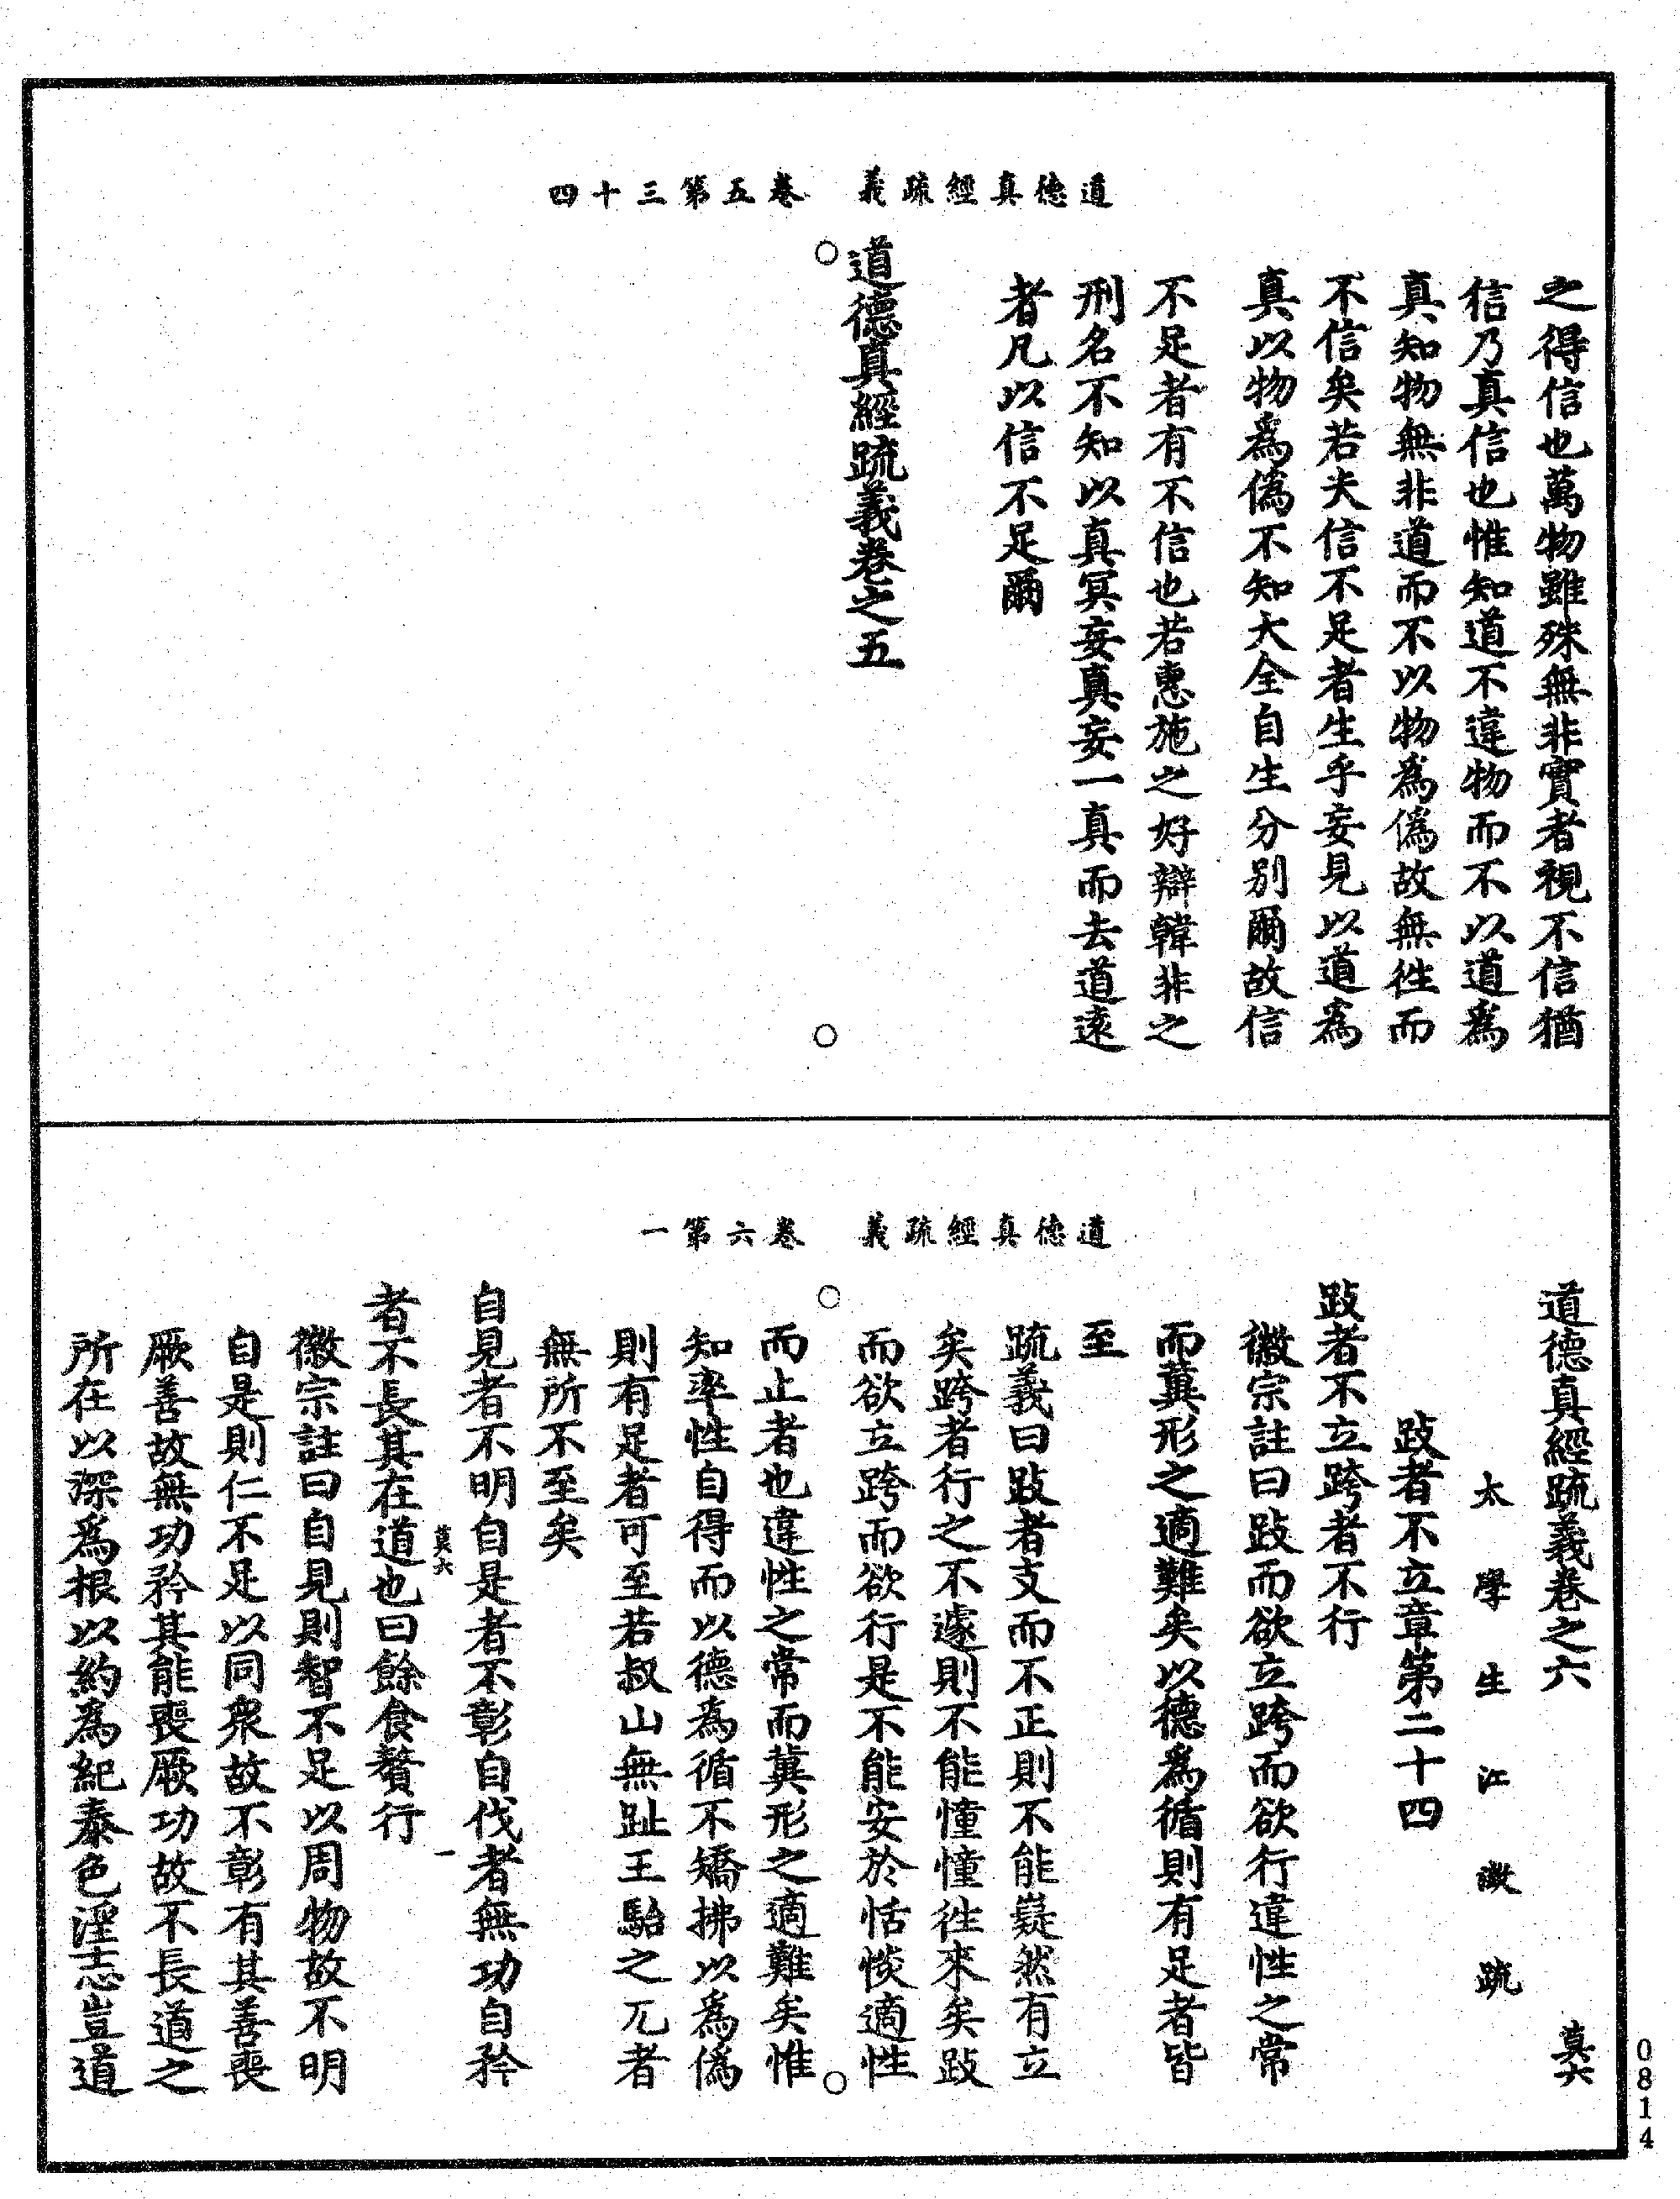 道德真經疏義　卷五第三十四
之得信也萬物雖殊無非實者視不信猶
信乃真信也惟知道不違物而不以道爲
真知物無非道而不以物爲僞故無徃而
不信矣若夫信不足者生乎妄見以道爲
真以物爲僞不知大全自生分别爾故信
不足者有不信也若惠施之好辯韓非之
刑名不知以真冥妄真妄一真而去道遠
者凡以信不足爾
道德真經疏義卷之五
道德真經疏義　卷六第一
道德真經疏義卷之六　莫六
太學生江澂疏
跂者不立章第二十四
跂者不立跨者不行
徽宗註曰跂而欲立跨而欲行違性之常
而冀形之適難矣以德爲循則有足者皆
至
疏義曰跂者支而不正則不能嶷然有立
矣跨者行之不遽則不能憧憧徃來矣跂
而欲立跨而欲行是不能安於恬惔適性
而止者也違性之常而冀形之適難矣惟
知率性自得而以德爲循不矯拂以爲僞
則有足者可至若叔山無趾王駘之兀者
無所不至矣
自見者不明自是者不彰自伐者無功自矜
莫六　一
者不長其在道也曰餘食贅行
徽宗註曰自見則智不足以周物故不明
自是則仁不足以同衆故不彰有其善喪
厥善故無功矜其能喪厥功故不長道之
所在以深爲根以約爲紀泰色淫志豈道
0814